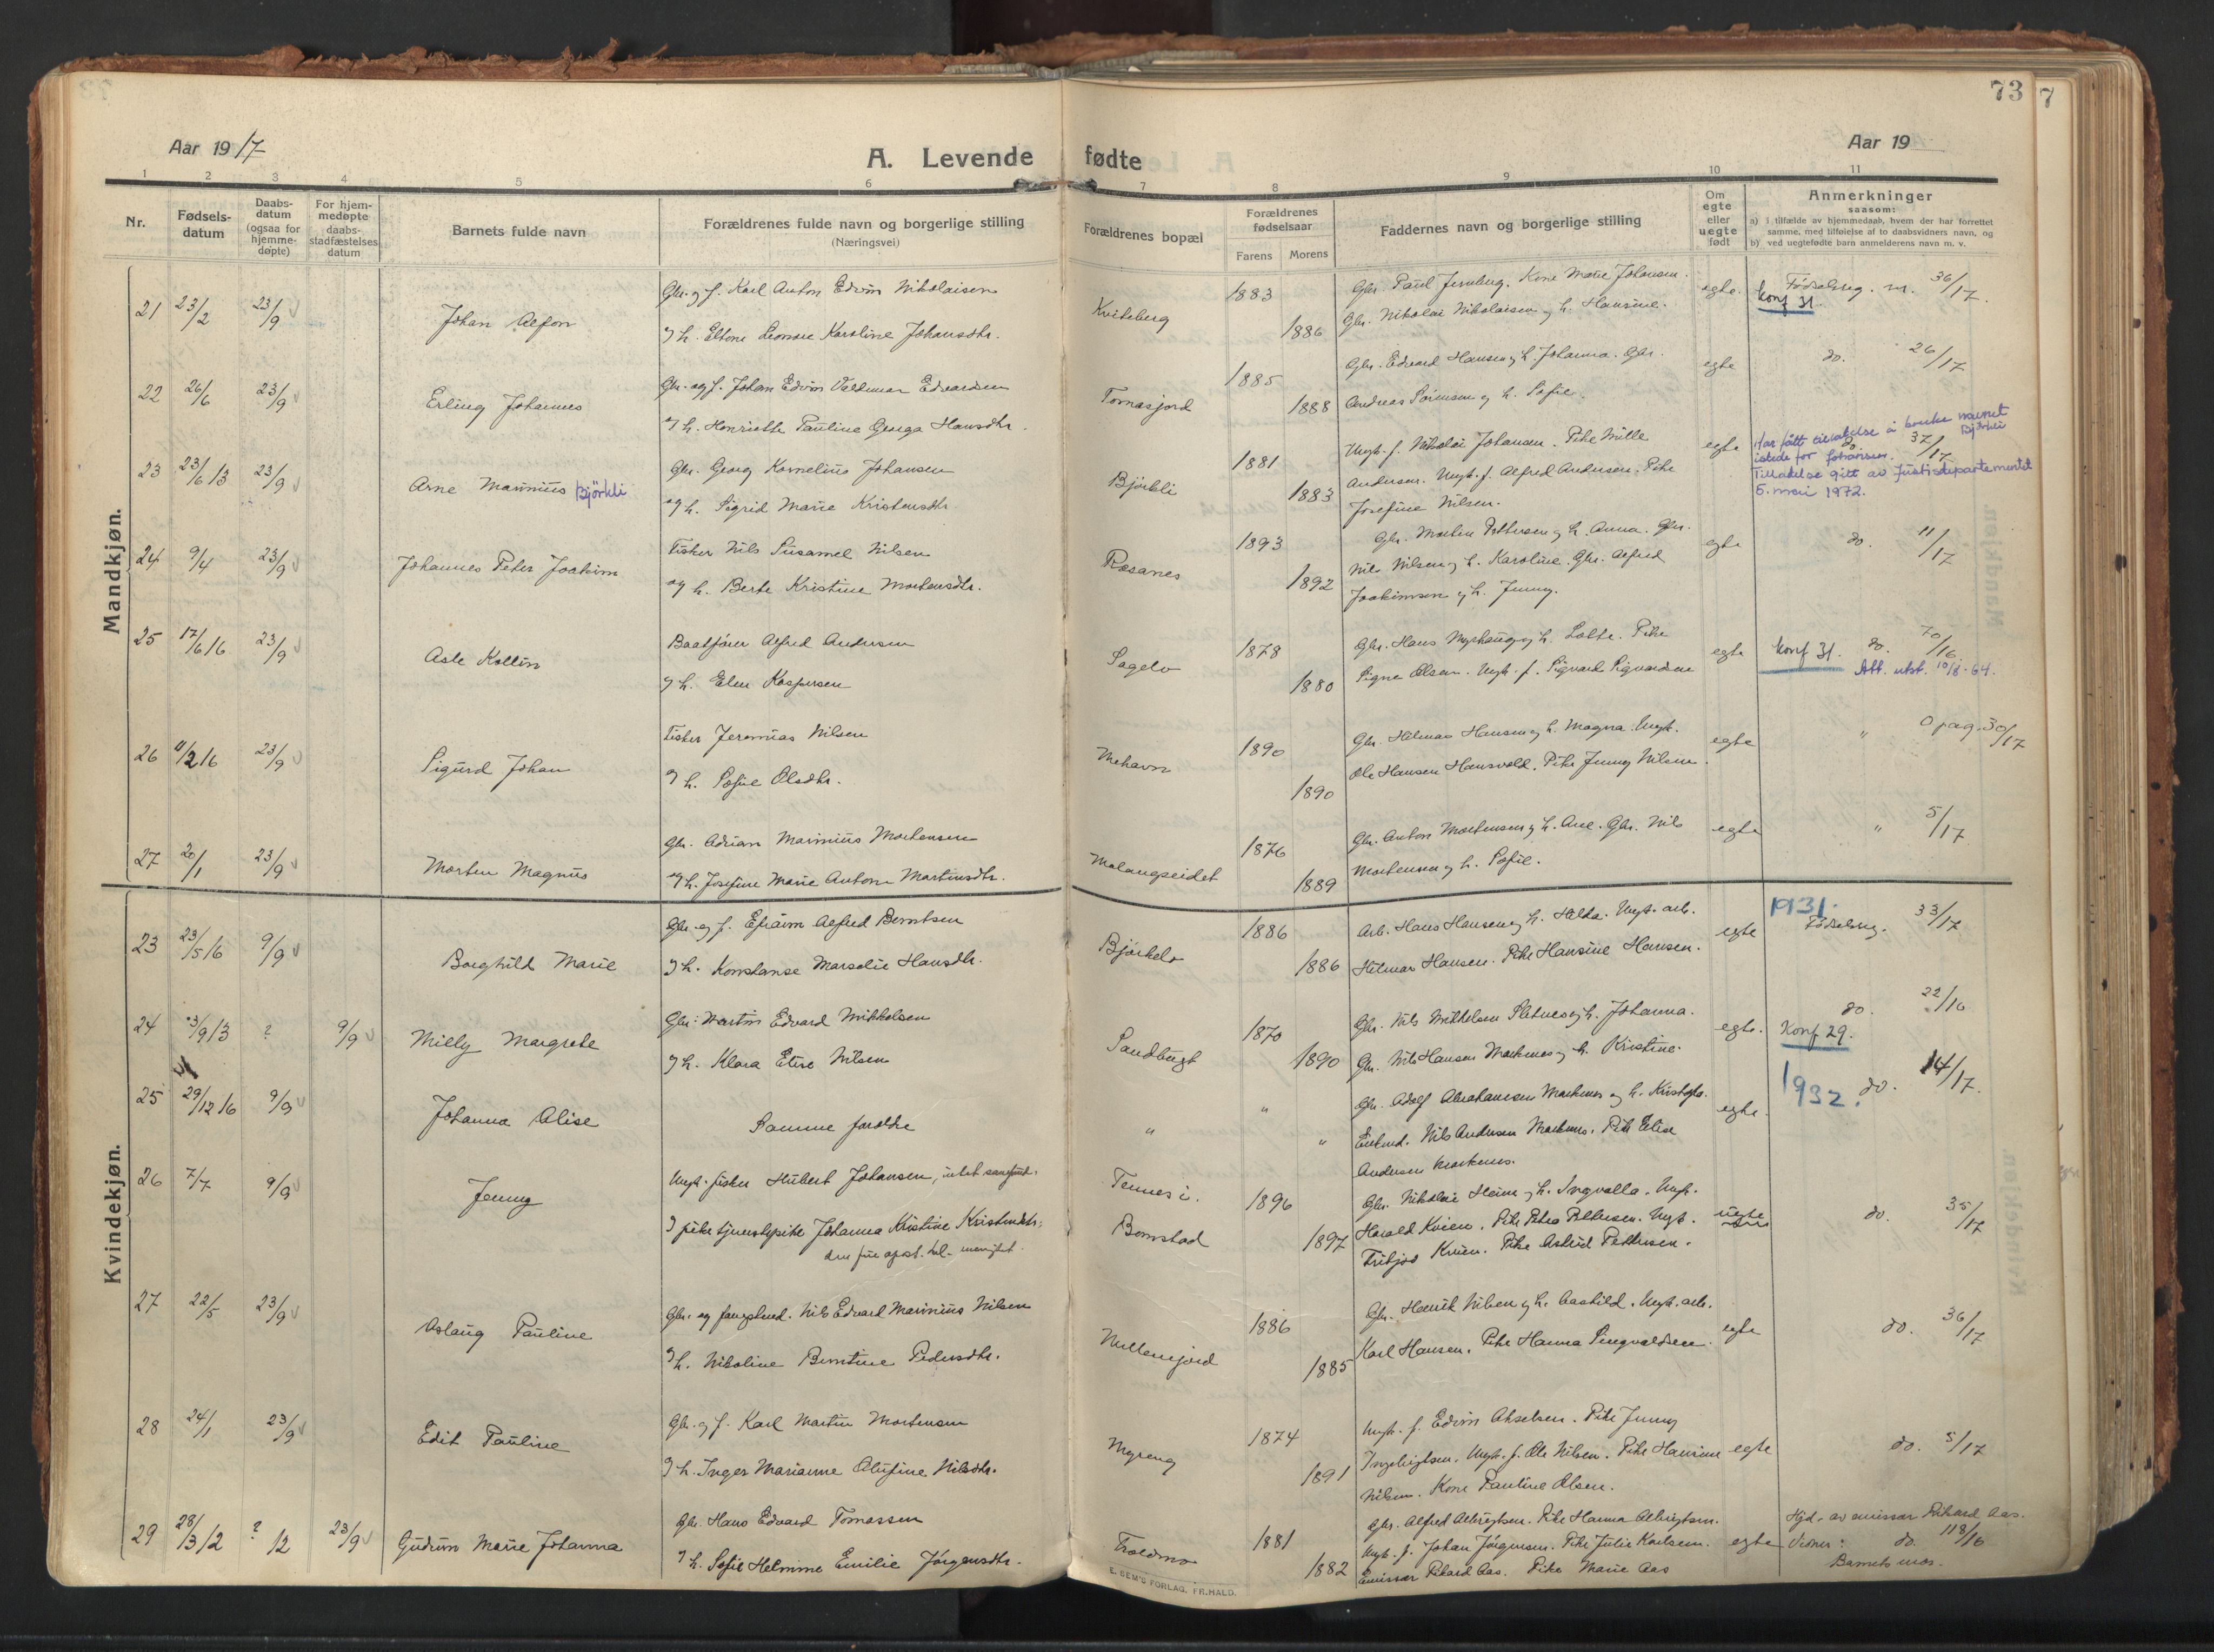 73 7
Aar 1917
A. Levende fødte
Aar 19
1 2 3 4 5 6 7 8 9 10 11
Nr.
Fødsels-
datum
Daabs-
datum
(ogsaa for
hjemme-
døpte)
For hjem-
medøpte
daabs-
stadfæstelses
datum
Barnets fulde navn
Forældrenes fulde navn og borgerlige stilling
(Næringsvei)
Forældrenes bopæl
Forældrenes
fødselsaar
Farens Morens
Faddernes navn og borgerlige stilling
Om
egte
eller
uegte
født
Anmerkninger
saasom:
a) I tilfælde av hjemmedaab, hvem der har forrettet
samme, med tilføielse af to daabsvidners navn, og
b) ved uegtefødte barn anmelderens navn m. v.
Mandkjøn.
21 23/2 23/9 Johan Alfon
Gbr. og f. Karl Anton Edvin Nikolaisen
og h. Eltone Leonore Karoline Johansdtr.
Kviteberg 1883 1886
Gbr. Paul Jernberg. Kone Marie Johansen.
Gbr. Nikolai Nikolaisen og h. Hansine.
egte. Fødselsreg. nr. 36/17.
konf 31.
22 26/6 23/9 Erling Johannes
Gbr. og f. Johan Edvin Valdemar Edvardsen
og h. Henriette Pauline Georga Hansdtr.
Tomasjord 1885 1888
Gbr. Edvard Hansen og h. Johanna. Gbr.
Andreas Sørensen og h. Sofie.
egte do. 26/17
23 23/6 13 23/9 Arne Marinius Björkli
Gbr. Georg Kornelius Johansen
og h. Sigrid Marie Kristensdtr.
Björkli 1881 1883
Ungk. f. Nikolai Johansen. Pike Mille
Andersen. Ungk. f. Alfred Andersen. Pike
Josefine Nilsen.
egte do. 37/17
Har fått tillatelse å bruke navnet
Björkli
istede for Johansen.
Tillatelse gitt av Justisdepartementet
5. mai 1972.
24 9/4 23/9 Johannes Peter Joakim
Fisker Nils Susamel Nilsen
og h. Berte Kristine Mortensdtr.
Rosanes 1893 1892
Gbr. Morten Pettersen og h. Anna. Gbr.
Nils Nilsen og h. Karoline. Gbr. Alfred
Joakimsen og h. Jenny.
egte do. 11/17
25 17/6 16 23/9 Asle Kollin
Baatfører Alfred Andersen
og h. Elen Kaspersen
Sagelv 1878 1880
Gbr. Hans Myrhaug og h. Lolte. Pike
Signe Olsen. Ungk. f. Sigvard Sigvardsen
egte konf 31. do. 70/16.
Att. utst. 10/8-64.
26 11/2 16 23/9 Sigurd Johan
Fisker Jeremias Nilsen
og h. Sofie Olsdtr.
Mehavn 1890 1890
Gbr. Hilmar Hansen og h. Magna. Ungk.
Ole Hansen Hansvold. Pike Jenny Nilsen.
egte " 0 pag. 30/17
27 20/1 23/9 Morten Magnus
Gbr. Adrian Marinius Mortensen
og h. Josefine Marie Antone Martinsdtr.
Malangseidet 1876 1889
Gbr. Anton Mortensen og h. Ane. Gbr. Nils
Mortensen og h. Sofie.
egte " 5/17
Kvindekjøn.
23 23/5 16 9/9 Borghild Marie
Gbr. og f. Efraim Alfred Berntsen
og h. Konstanse Marselie Hansdtr.
Bjørkelv 1886 1886
Arb. Hans Hansen og h. Hilda. Ungk. arb.
Hilmar Hansen. Pike Hansine Hansen.
egte 1931. Fødselsreg. 33/17
24 3/9 13 ? 9/9 Milly Margrete
Gbr. Martin Edvard Mikkelsen
og h. Klara Elise Nilsen
Sandbugt 1870 1890
Gbr. Nils Mikkelsen Sletnes og h. Johanna.
Gbr. Nils Hansen Marknes og h. Kristine.
egte. do. 22/16
Konf 29.
25 29/12 16 9/9 Johanna Alise
Samme foreldre
" " "
Gbr. Adolf Abrahamsen Marknes og h.
Nils Andersen Marknes. Pike Elise
Andersen Marknes.
egte. 1932. do. 14/17.
26 7/7 9/9 Jenny
Ungk. fisker Hubert Johansen, intet samfund.
og pike tjenestepike Johanna Kristine Kristensdtr.
den frie apost. luth. menighet.
Tennes i.
Bomstad 1896 1897
Gbr. Nikolai Heim og h. Ingvalla. Ungk.
Harald Kvien. Pike Petra Pettersen. Ungk.
Fritjof Kvien. Pike Astrid Pettersen.
uegte do. 35/17
27 22/5 23/9 Aslaug Pauline
Gbr. og fangstmd. Nils Edvard Marinius Nilsen
og h. Nikoline Berntine Pedersdtr.
Mellemjord 1886 1885
Gbr. Henrik Nilsen og h. Aashild. Ungk. arb.
Karl Hansen. Pike Hanna Singvaldsen.
egte do. 36/17
28 24/1 23/9 Edit Pauline
Gbr. og f. Karl Martin Mortensen
og h. Inger Marianne Olufine Nilsdtr.
Myreng 1874 1891
Ungk. f. Edvin Akselsen. Pike Jenny
Ingebrigtsen. Ungk. f. Ole Nilsen. Pike Hansine
Nilsen. Kone Pauline Olsen.
egte do. 5/17
29 28/3 12 ? 12 23/9 Gudrun Marie Johanna
Gbr. Hans Edvard Tomassen
og h. Sofie Helmine Emilie Jørgensdtr.
Troldmo 1881 1882
Gbr. Alfred Albrigtsen. Pike Hanna Albrigtsen.
Ungk. f. Johan Jörgensen. Pike Julie Karlsen.
Emissær Rikard Aas. Pike Marie Aas
egte Hjd. av emissær Rikard Aas.
Vidner: do. 118/16
Barnets mor.
E. SEM'S FORLAG, FR.HALD.